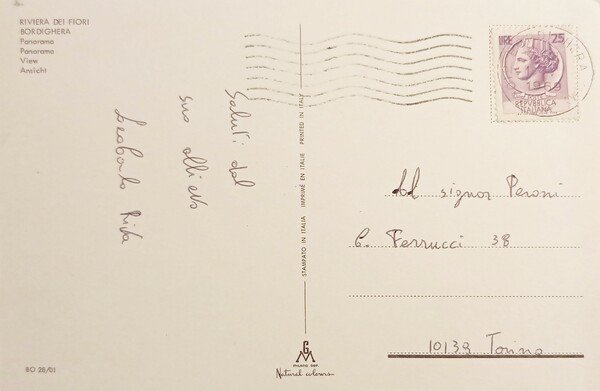 RIVIERA DEI FIORI
BORDIGHERA
Panorama
Panorama
View
Ansicht
Saluti dal
suo allievo
Rita
STAMPATO IN ITALIA IMPRIMÉ EN ITALIE PRINTED IN ITALY
LIRE 25
REPUBBLICA
ITALIANA
signor Peroni
C. Ferrucci 38
10138 Torino
BO 28/01
GM
Natural colours